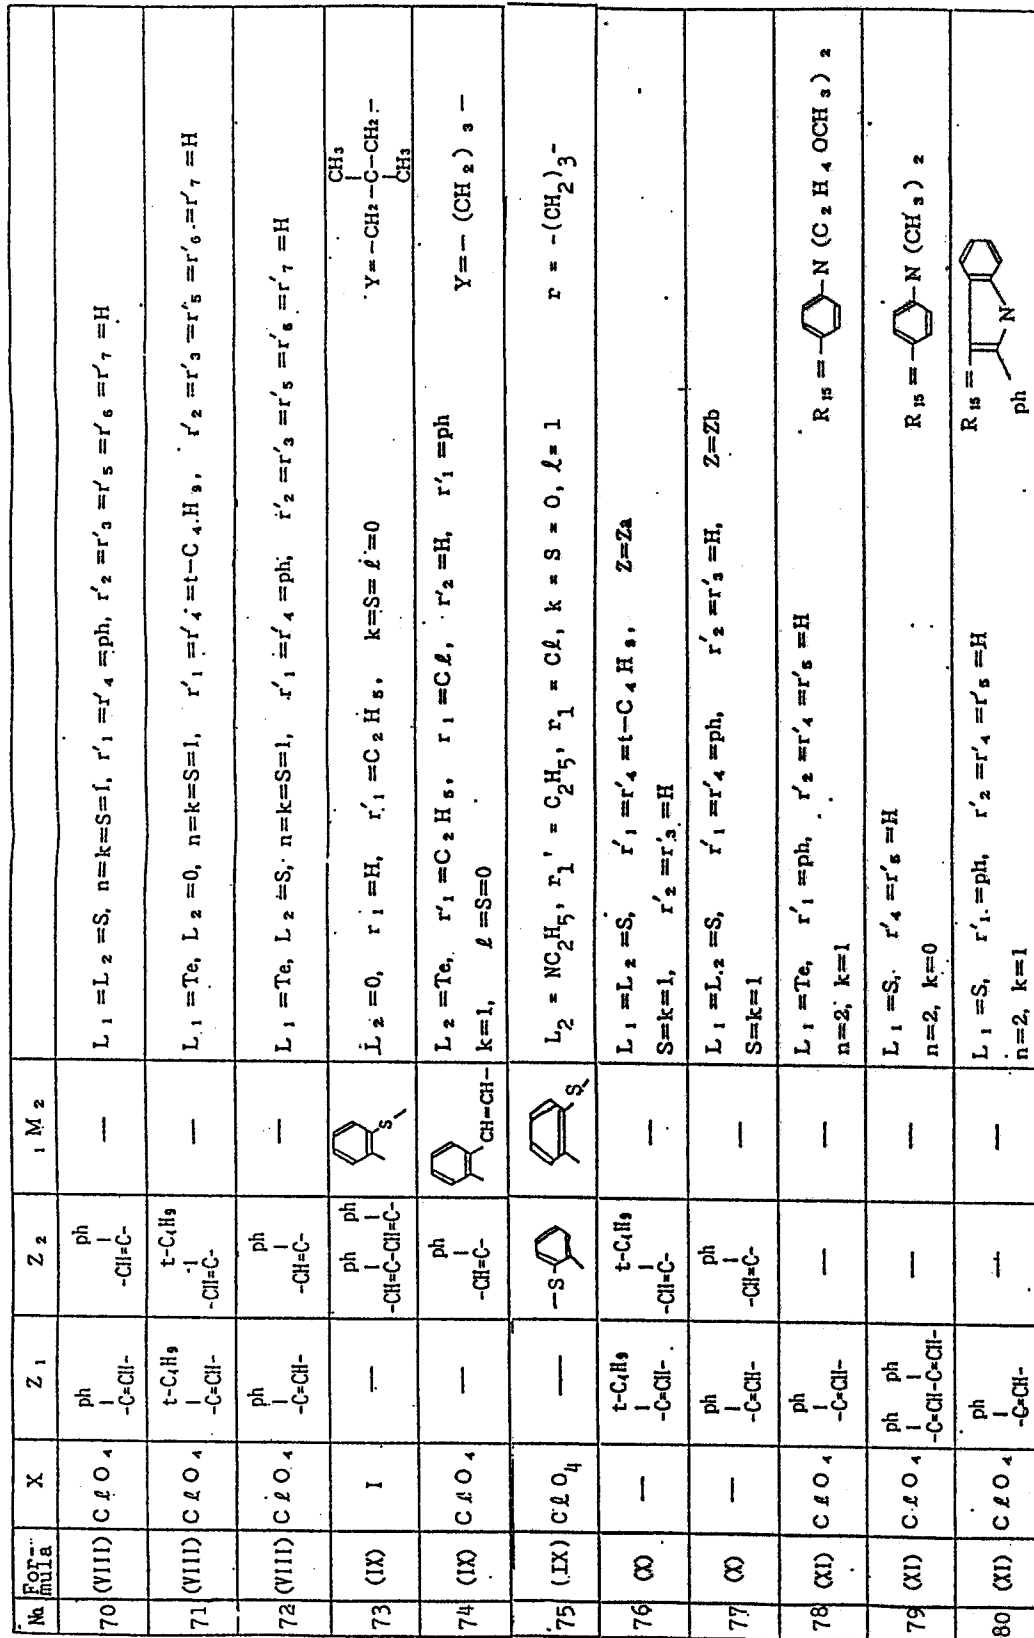 No. For-mula X Z 1 Z 2 1 M 2
70 (VIII) CℓO4 ph -C=CH- ph -CH=C- — L1=L2=S, n=k=S=1, r'1=r'4=ph, r'2=r'3=r'5=r'6=r'7=H
71 (VIII) CℓO4 t-C4H9 -C=CH- t-C4H9 -CH=C- — L1=Te, L2=0, n=k=S=1, r'1=r'4=t-C4H9, r'2=r'3=r'5=r'6=r'7=H
72 (VIII) CℓO4 ph -C=CH- ph -CH=C- — L1=Te, L2=S, n=k=S=1, r'1=r'4=ph, r'2=r'3=r'5=r'6=r'7=H
73 (IX) I — ph ph -CH=C-CH=C- S L2=0, r1=H, r'1=C2H5, k=S=ℓ=0 Y=-CH2-C-CH2- CH3 CH3
74 (IX) CℓO4 — ph -CH=C- CH=CH- L2=Te, r'1=C2H5, r1=Cℓ, r'2=H, r'1=ph Y=-(CH2)3-
k=1, ℓ=S=0
75 (IX) CℓO4 — -S- S L2 = NC2H5, r1' = C2H5, r1 = Cℓ, k = S = 0, ℓ = 1 r = -(CH2)3-
76 (X) — t-C4H9 -C=CH- t-C4H9 -CH=C- — L1=L2=S, r'1=r'4=t-C4H9, Z=Za
S=k=1, r'2=r'3=H
77 (X) — ph -C=CH- ph -CH=C- — L1=L2=S, r'1=r'4=ph, r'2=r'3=H, Z=Zb
S=k=1
78 (XI) CℓO4 ph -C=CH- — — L1=Te, r'1=ph, r'2=r'4=r'5=H R15= -N(C2H4OCH3)2
n=2, k=1
79 (XI) CℓO4 ph ph -C=CH-C=CH- — — L1=S, r'4=r'5=H R15= -N(CH3)2
n=2, k=0
80 (XI) CℓO4 ph -C=CH- — — L1=S, r'1=ph, r'2=r'4=r'5=H R15= N ph
n=2, k=1